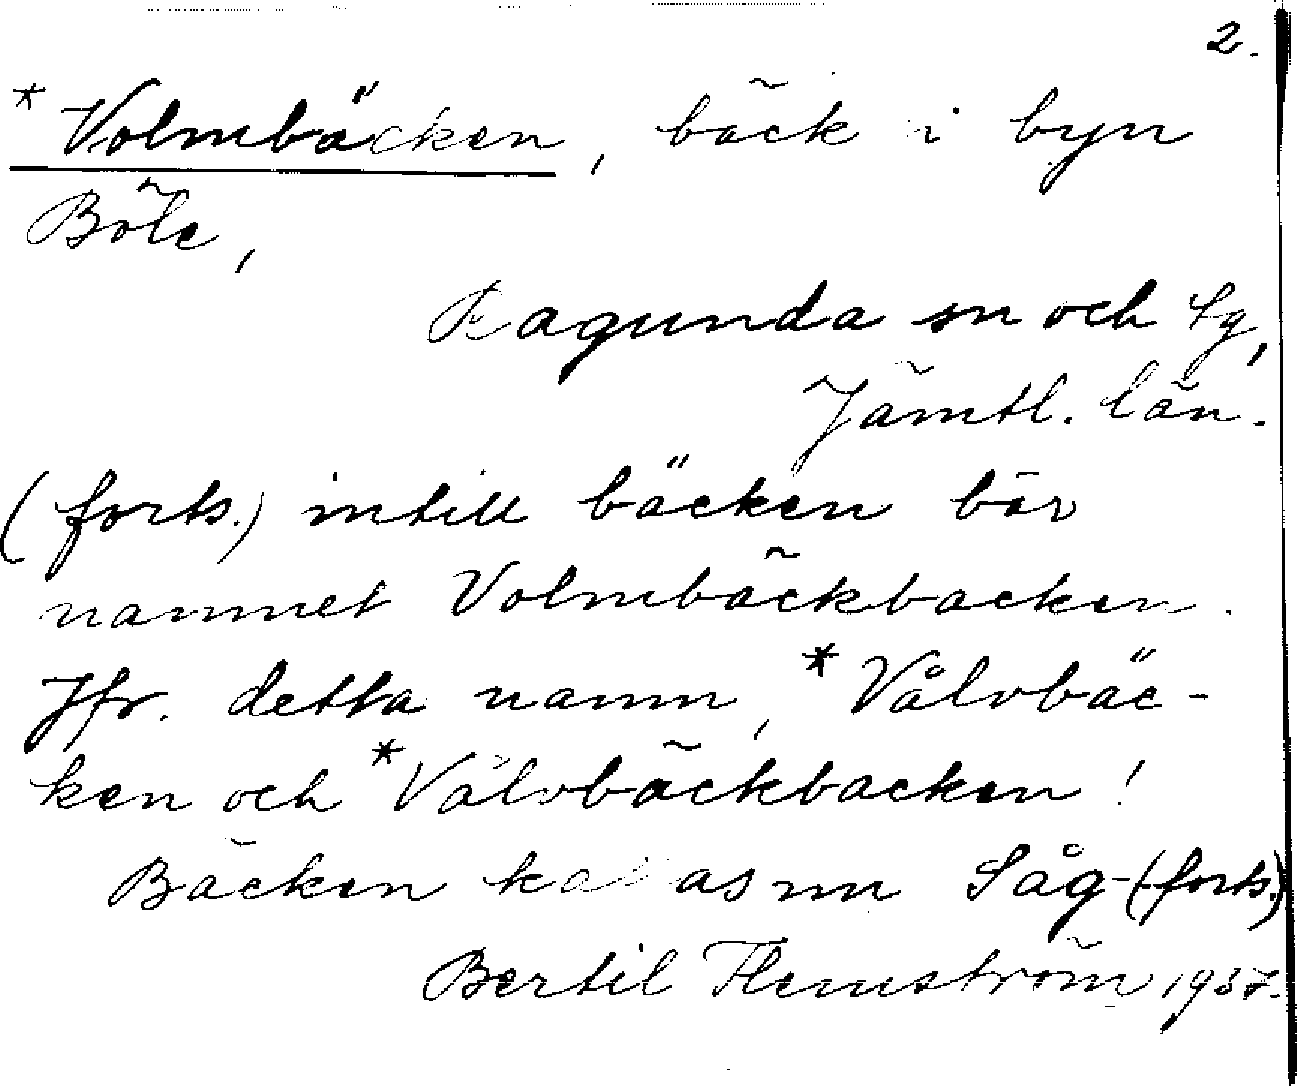 2.
*Volmbäcken, bäck i byn
Böle,
Ragunda sn och tg,
Jämtl. län.
(forts.) intill bäcken bär
namnet Volmbäckbacken.
Jfr. detta namn, *Vålvbäc-
ken och *Vålvbäckbacken!
Bäcken kallas nu Såg-(forts.)
Bertil Flemström 1937.